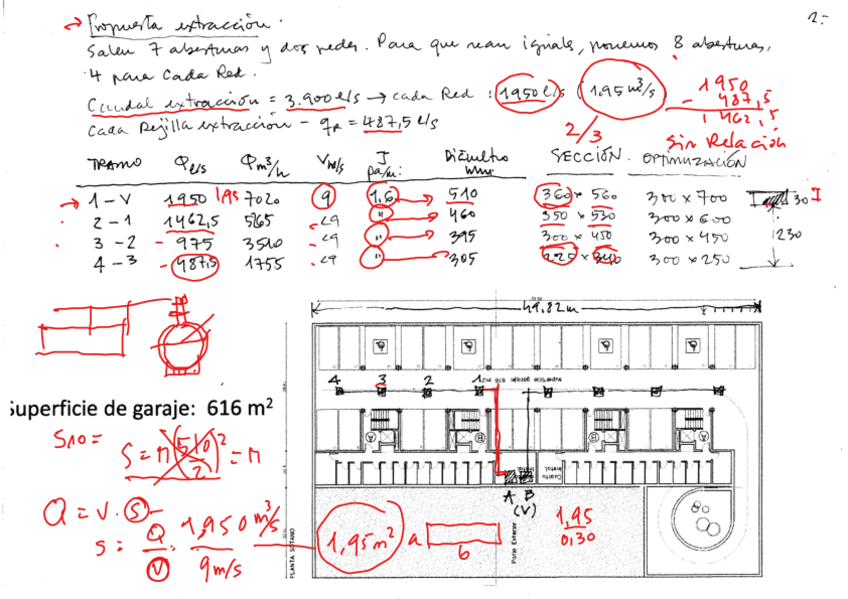 2.-
→ Propuesta extracción.
Salen 7 aberturas y dos redes. Para que sean iguales, ponemos 8 aberturas,
4 para cada Red.
Caudal extracción = 3.900 l/s → cada Red : 1950 l/s (1,95 m³/s)
Cada Rejilla extracción - qr = 487,5 l/s
2/3
1950
- 487,5
1462,5
Sin Relación
TRAMO Q l/s Q m³/h V m/s J pa/m: Diámetro mm. SECCIÓN. OPTIMIZACIÓN
1 - V 1950 1,95 7020 9 1,6 510 360 x 560 300 x 700
2 - 1 1462,5 5265 <9 " 460 350 x 530 300 x 600
3 - 2 - 975 3510 <9 " 395 300 x 450 300 x 450
4 - 3 - 487,5 1755 <9 " 305 225 x 340 300 x 250
30 I
230
49,82 m
4 3 2 1
616 m2
superficie garaje
Superficie de garaje: 616 m²
S = π (510/2)² = π
Q = V · S
S = Q/V = 1,950 m³/s / 9 m/s
1,95 m²
a
b
1,95
0,30
A B
(V)
Cuarto
Instal.
PLANTA SOTANO
Patio Exterior